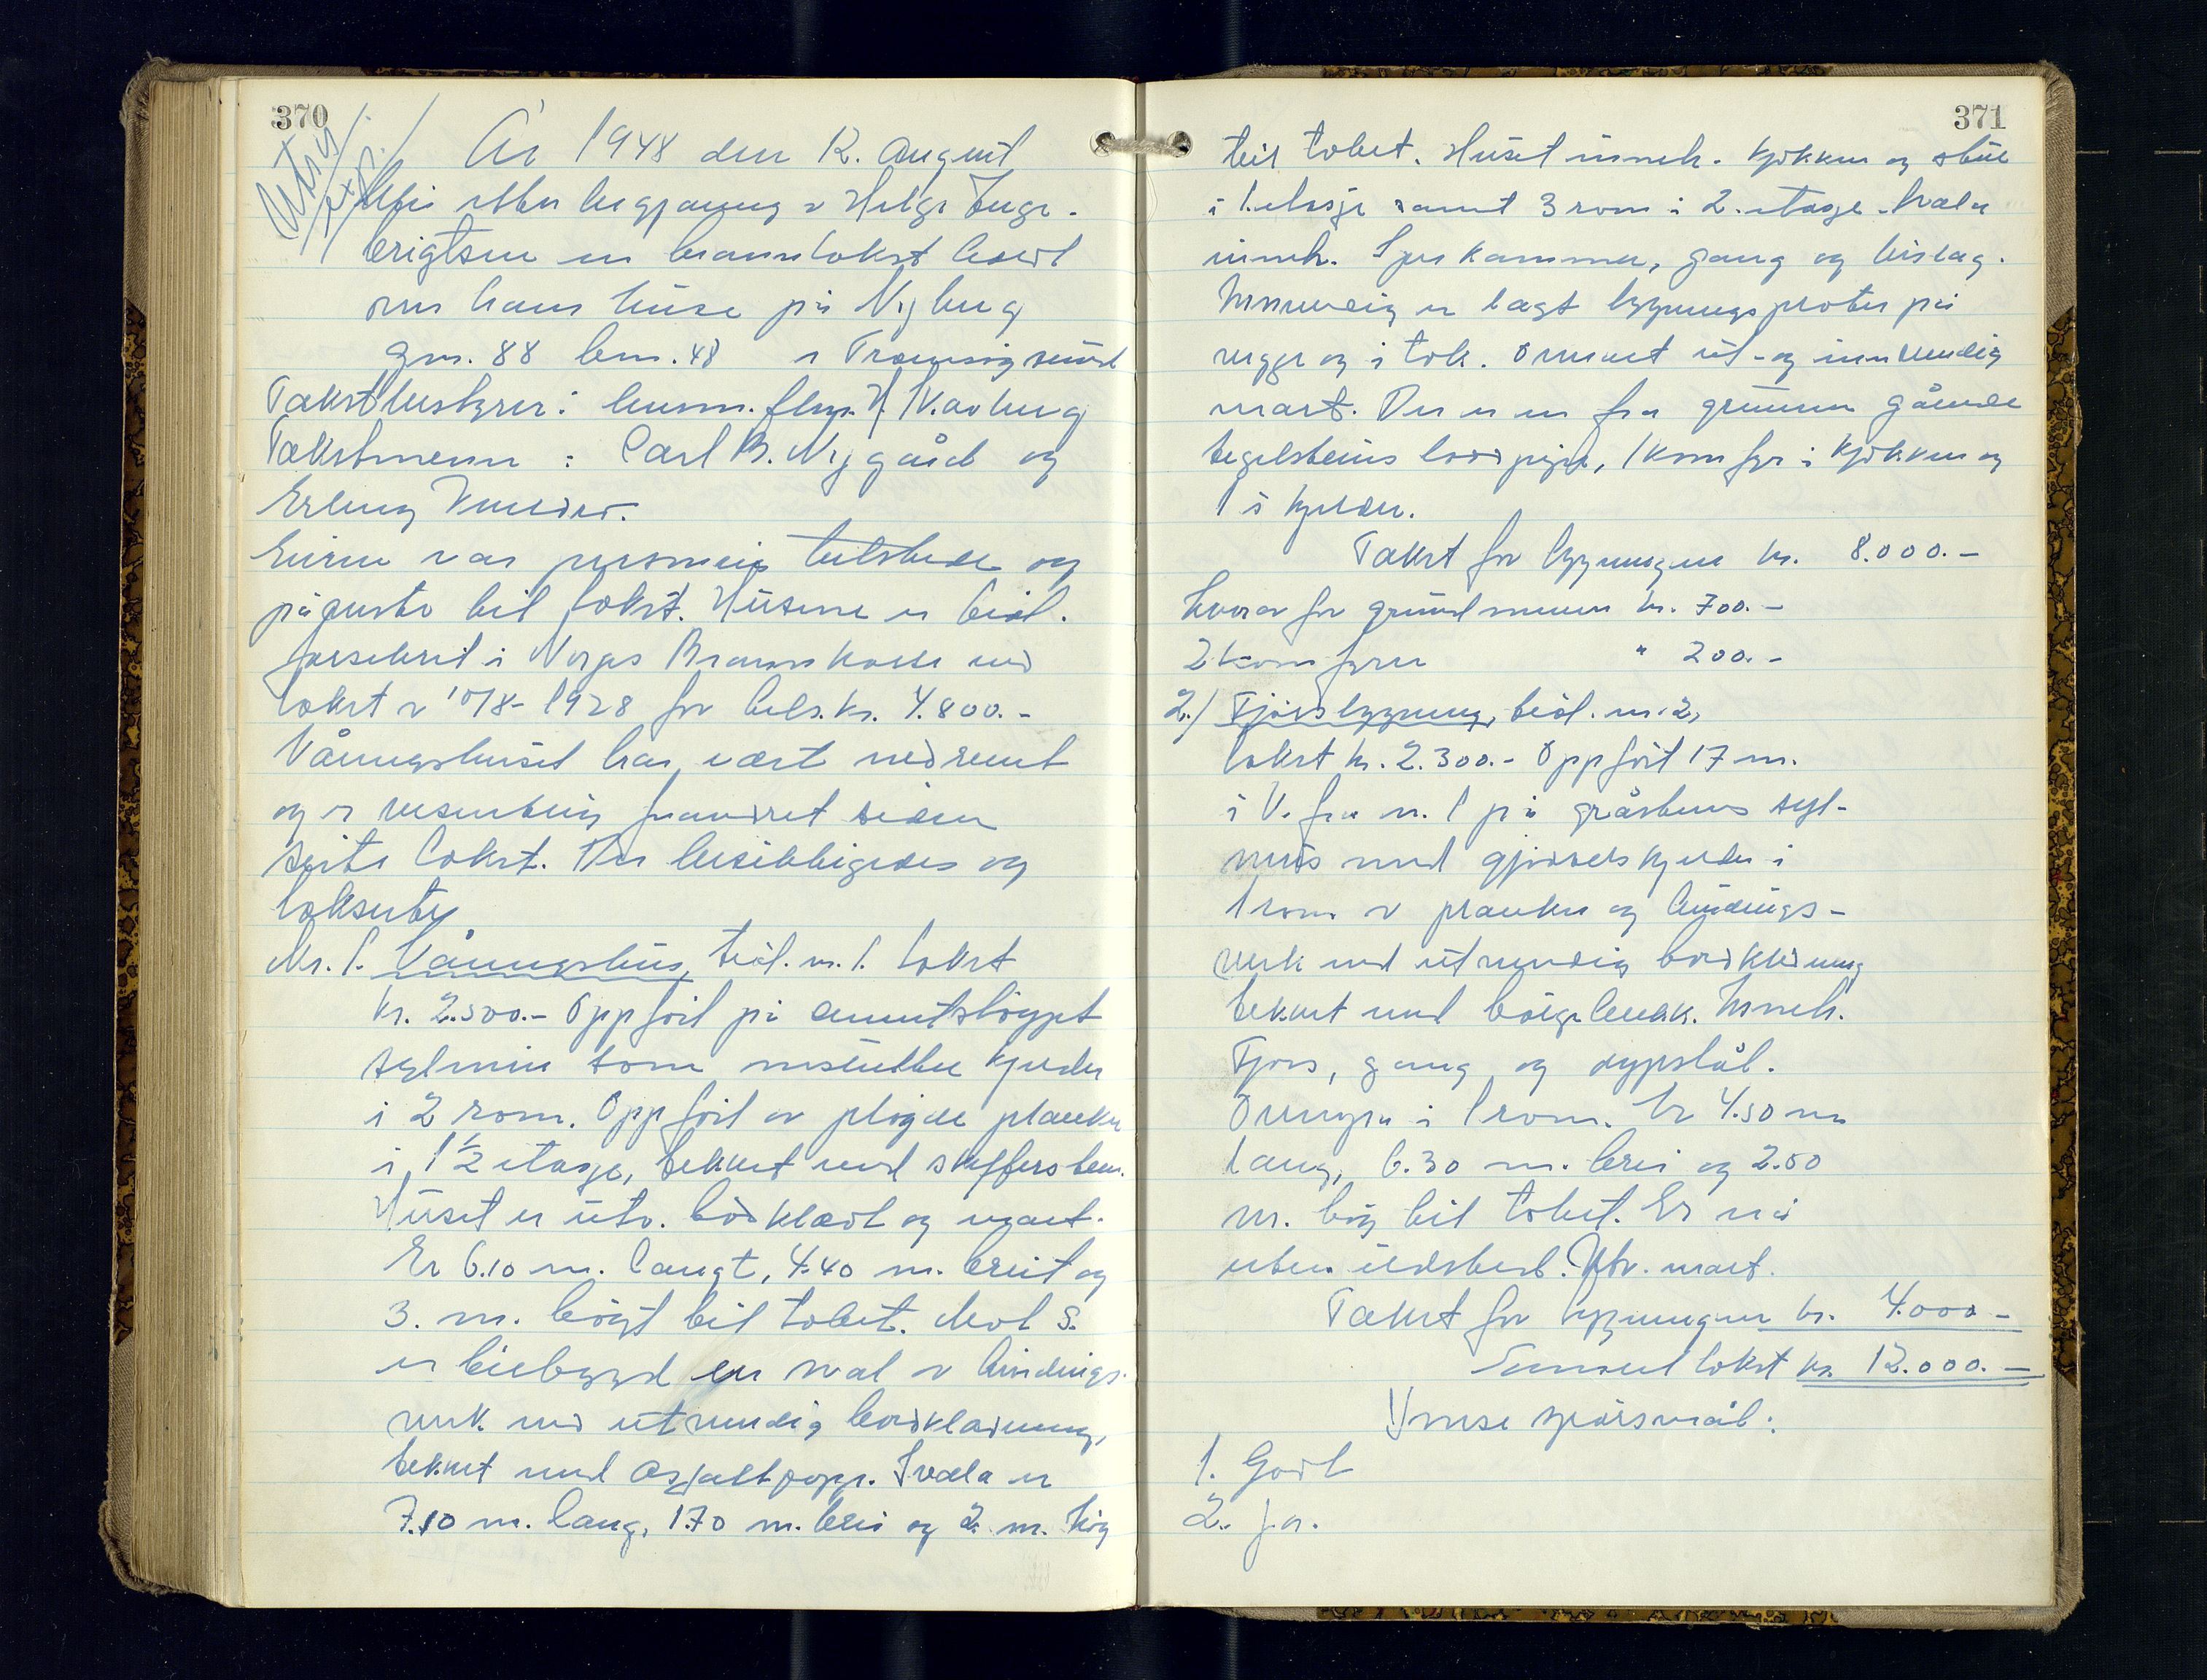 370
Utskr.
År 1948 den 12. august
blei etter begjæring av Helge Inge-
brigtsen en branntakst holdt
over hans huse på Nyberg
gnr. 88 bnr. 48 i Tranøysund
Takstbestyrer: lensm. flm. H. Kaarberg
Takstmenn: Carl B. Nygård og
Erling
Eieren var personlig tilstede og
påviste til takst. Husene er tidl.
forsikret i Norges Brannkasse ved
takst av 10/8-1928 for tils. kr. 4.800.-
Våningshuset har vært nedrevet
og er vesentlig forandret siden
siste takst. Der besiktigedes og
taksertes
Nr. 1. Våningshus, tidl. nr. 1. takst
kr. 2.500.- Oppført på sementstøypt
sylmur som innslutter kjeller
i 2 rom. Oppført av pløgde planker
i 1 ½ etasje, tekket med skiffersten.
Huset er utv. bordklædt og malt.
Er 6.10 m. langt, 4.40 m. breit og
3. m. høgt til taket. Mot S.
er tilbygd en sval av bindings-
verk med utvendig bordklædning,
tekket med asfaltpapp. Svala er
7.10 m. lang, 1.70 m. brei og 2. m. høg
371
til taket. Huset inneh. kjøkken og stue
i 1. etasje samt 3 rom i 2. etasje. Svala
inneh. Spiskammer, gang og bislag.
Innvendig er lagt bygningsplater på
vegger og i tak. Ommalt ut- og innvendig
malt. Der er en fra grunnen gående
teglsteins loddpipe, 1 komfyr i kjøkken og
1 i kjeller.
Takst for bygningen kr. 8.000.-
Hvorav for grunnmuren kr. 700.-
2 komfyrer " 200.-
2./ Fjøsbygning, tidl. nr. 2,
takst kr. 2.300.- Oppført 17 m.
i V. fra nr. 1 på gråsteins syl-
mur med gjødselskjeller i
1 rom av planker og bindings-
verk med utvendig bordkledning
tekket med bølgeblekk. Inneh.
Fjøs, gang og
Overgen i 1 rom. Er 4.50 m
lang, 6.30 m. brei og 2.50
m. høg til taket. Er nå
uten ildsted. Utv. malt.
Takst for bygningen kr. 4.000-
Samlet takst kr. 12.000.-
Ymse spørsmål:
1. Godt
2. Ja.